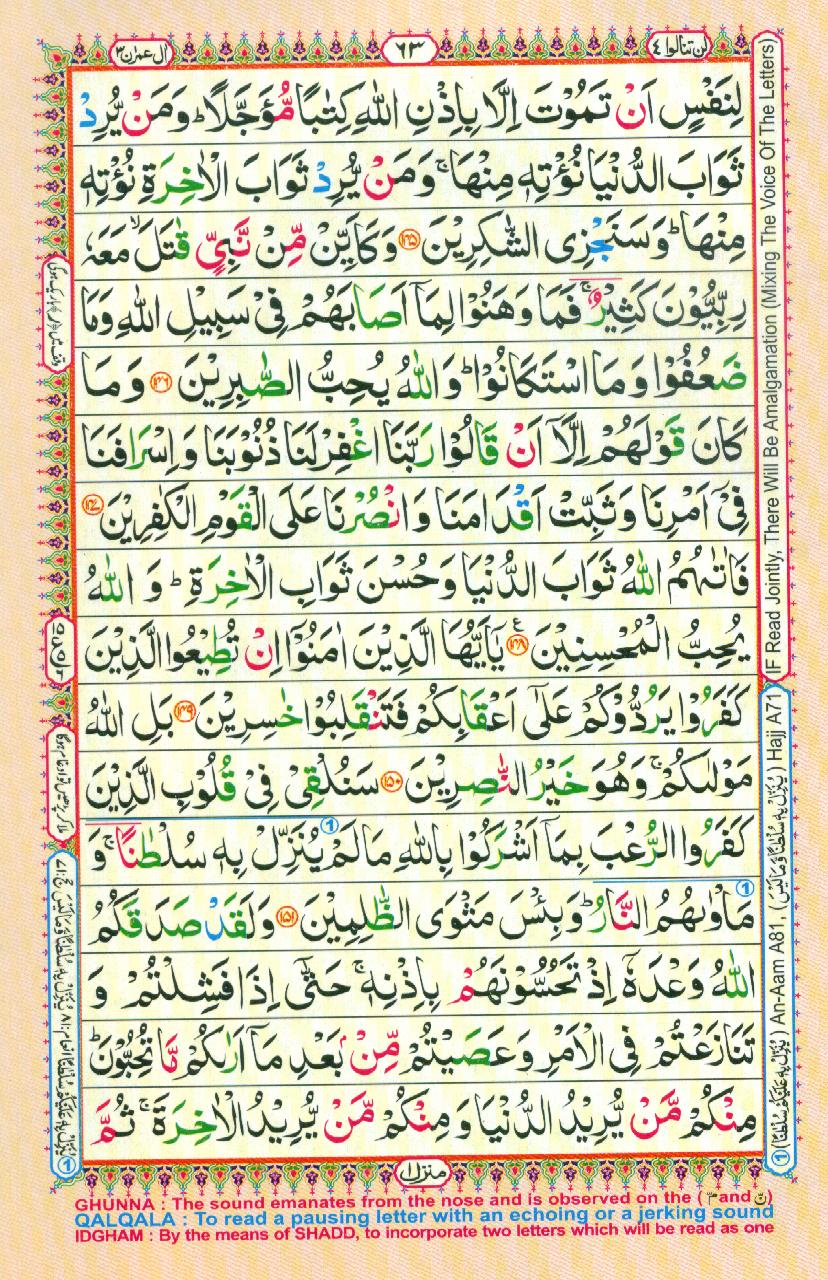 لن تنالوا ٤
٦٣
اٰل عمرٰن ٣
لِنَفْسٍ اَنْ تَمُوْتَ اِلَّا بِاِذْنِ اللّٰهِ كِتٰبًا مُّؤَجَّلًا ؕ وَمَنْ يُّرِدْ
ثَوَابَ الدُّنْيَا نُؤْتِهٖ مِنْهَا ۚ وَمَنْ يُّرِدْ ثَوَابَ الْاٰخِرَةِ نُؤْتِهٖ
مِنْهَا ؕ وَسَنَجْزِى الشّٰكِرِيْنَ ﴿۱۴۵﴾ وَكَاَيِّنْ مِّنْ نَّبِيٍّ قٰتَلَ ۙ مَعَهٗ
رِبِّيُّوْنَ كَثِيْرٌ ۚ فَمَا وَهَنُوْا لِمَاۤ اَصَابَهُمْ فِيْ سَبِيْلِ اللّٰهِ وَمَا
ضَعُفُوْا وَمَا اسْتَكَانُوْا ؕ وَاللّٰهُ يُحِبُّ الصّٰبِرِيْنَ ﴿۱۴۶﴾ وَمَا
كَانَ قَوْلَهُمْ اِلَّاۤ اَنْ قَالُوْا رَبَّنَا اغْفِرْ لَنَا ذُنُوْبَنَا وَاِسْرَافَنَا
فِيْۤ اَمْرِنَا وَثَبِّتْ اَقْدَامَنَا وَانْصُرْنَا عَلَى الْقَوْمِ الْكٰفِرِيْنَ ﴿۱۴۷﴾
فَاٰتٰىهُمُ اللّٰهُ ثَوَابَ الدُّنْيَا وَحُسْنَ ثَوَابِ الْاٰخِرَةِ ؕ وَاللّٰهُ
يُحِبُّ الْمُحْسِنِيْنَ ﴿۱۴۸﴾ يٰۤاَيُّهَا الَّذِيْنَ اٰمَنُوْۤا اِنْ تُطِيْعُوا الَّذِيْنَ
كَفَرُوْا يَرُدُّوْكُمْ عَلٰۤى اَعْقَابِكُمْ فَتَنْقَلِبُوْا خٰسِرِيْنَ ﴿۱۴۹﴾ بَلِ اللّٰهُ
مَوْلٰىكُمْ ۚ وَهُوَ خَيْرُ النّٰصِرِيْنَ ﴿۱۵۰﴾ سَنُلْقِيْ فِيْ قُلُوْبِ الَّذِيْنَ
كَفَرُوا الرُّعْبَ بِمَاۤ اَشْرَكُوْا بِاللّٰهِ مَا لَمْ يُنَزِّلْ بِهٖ سُلْطٰنًا ۚ وَ
مَاْوٰىهُمُ النَّارُ ؕ وَبِئْسَ مَثْوَى الظّٰلِمِيْنَ ﴿۱۵۱﴾ وَلَقَدْ صَدَقَكُمُ
اللّٰهُ وَعْدَهٗۤ اِذْ تَحُسُّوْنَهُمْ بِاِذْنِهٖ ۚ حَتّٰۤى اِذَا فَشِلْتُمْ وَ
تَنَازَعْتُمْ فِى الْاَمْرِ وَعَصَيْتُمْ مِّنْۢ بَعْدِ مَاۤ اَرٰىكُمْ مَّا تُحِبُّوْنَ ؕ
مِنْكُمْ مَّنْ يُّرِيْدُ الدُّنْيَا وَمِنْكُمْ مَّنْ يُّرِيْدُ الْاٰخِرَةَ ۚ ثُمَّ
منزل ١
IF Read Jointly, There Will Be Amalgamation (Mixing The Voice Of The Letters)
① (يُنَزِّلْ بِهٖ عَلَيْكُمْ سُلْطٰنًا) An-Aam A81, (يُنَزِّلْ بِهٖ سُلْطٰنًا وَّمَا لَيْسَ) Hajj A71
GHUNNA : The sound emanates from the nose and is observed on the ( مّ and نّ )
QALQALA : To read a pausing letter with an echoing or a jerking sound
IDGHAM : By the means of SHADD, to incorporate two letters which will be read as one